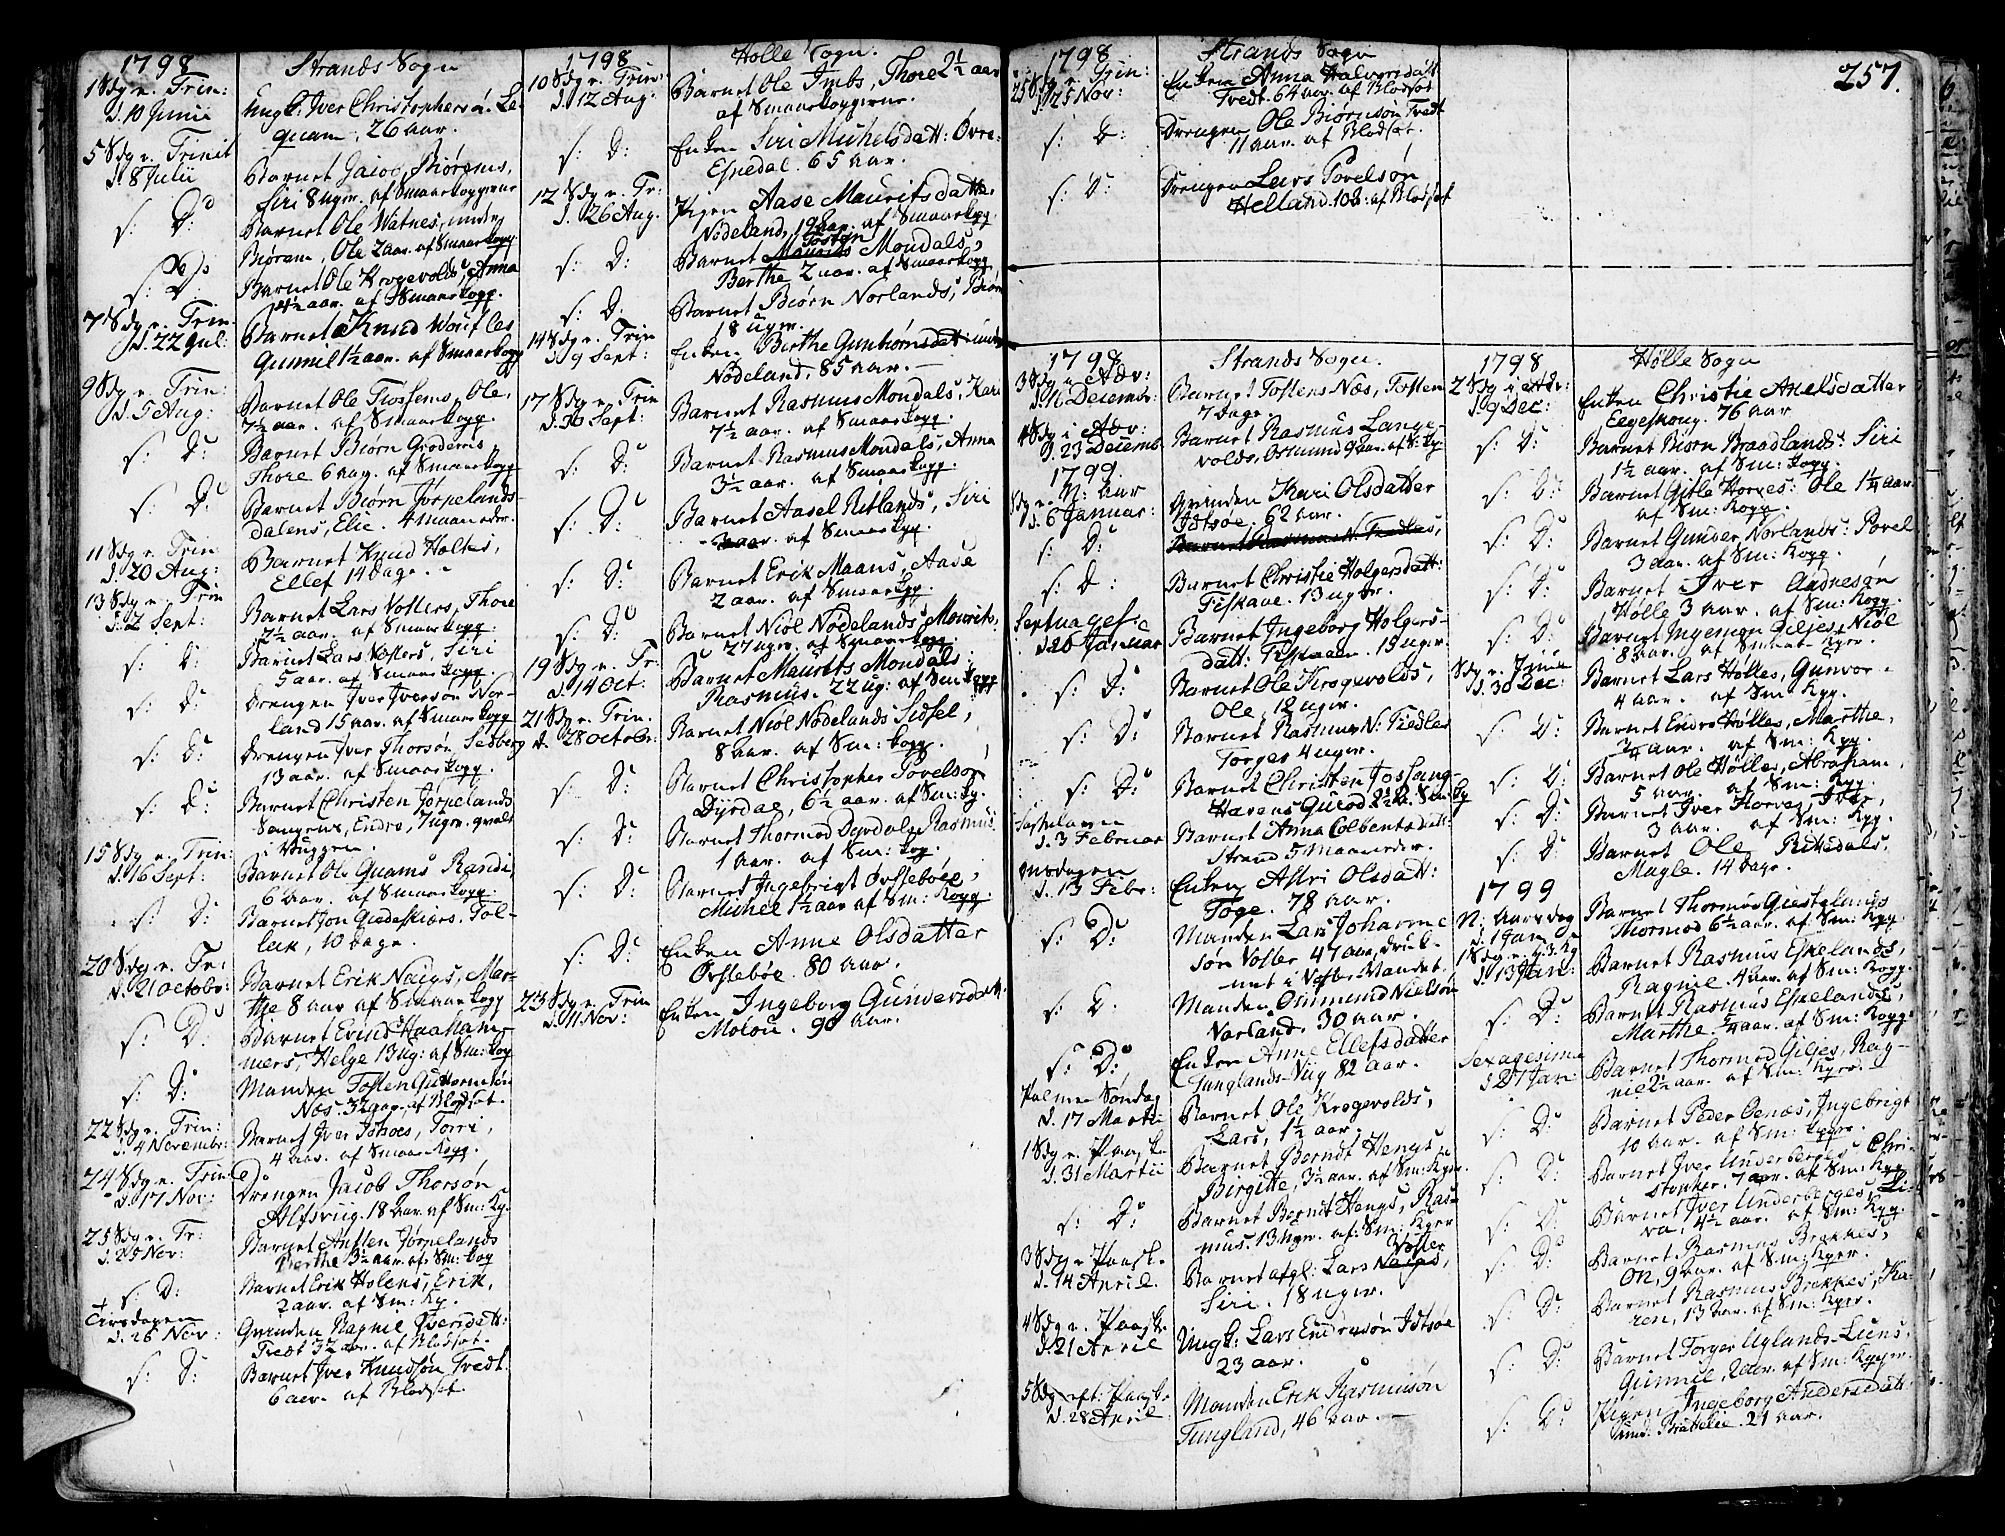 1798
Strands Sogn
1 Sdg e. Trin:
d. 10 Junii
Ungk: Iver Christophersøn Le-
quam, 26 aar.
5 Sdg e. Trinit
d. 8 Julii
Barnet Jacob Biørems,
Siri 8 uger. af Smaakoggerne
s: D:
Barnet Ole Watnes, under
Biørem, Ole 2 aar. af Smaakogg.
s: D:
Barnet Ole Krogevolds, Anna
aar. af Smaakogg.
7 Sdg e. Trin:
d. 22 Jul:
Barnet Knud
Gunnil 1½ aar. af Smaakogg
9 Sdg e. Trin:
d. 5 Aug:
Barnet Ole Tiossems, Ole,
7½ aar. af Smaakogg.
s: D:
Barnet Biørn Grødems,
Thore 6 aar. af Smaakogg.
s: D:
Barnet Biørn Jørpelands-
dalens, Elie. 4 maaneder.
11 Sdg e. Trin
d. 20 Aug:
Barnet Knud Holtes,
Ellef 14 Dage.
13 Sdg e. Trin
d. 2 Sept:
Barnet Lars Vosters, Thore
2½ aar. af Smaakogg.
s: D:
Barnet Lars Vosters, Siri
5 aar. af Smaakogg.
s: D:
Drengen Iver Iversøn Nor-
land 15 aar. af Smaakogg
s: D:
Drengen Iver Thorsøn Sedberg
13 aar. af Smaakogg.
s: D:
Barnet Christen Jørpelands
Endre, 7 uger. qvalt
i Vuggen.
15 Sdg e. Trin:
d. 16 Sept:
Barnet Ole Quams Rande,
6 aar. af Smaakogg.
s: D:
Barnet Jon Giedeskiørs. Tol-
lek, 10 Dage.
20 Sdg e. Tr:
d. 21 Octobr:
Barnet Erik Naigs, Mar-
the 8 aar af Smaakogg
s: D:
Barnet Erind Haaham-
mers, Helge 13 ug: af Sm: kog
s: D:
Manden Tosten Guttormsøn
Næs. 32 aar, af Blodsot.
22 Sdg e. Trin:
d. 4 Novembr:
Barnet Iver Idsøes, Torri,
4 aar. af Smaakogg.
24 Sdg e. Trin:
d. 17 Nov:
Drengen Jacob Thorsøn
Alfsvug. 18 aar af Sm: Kg.
25 Sdg e. Tr:
d. 25 Nov:
Barnet Austen Jørpelands
Berthe 3½ aar. af Sm: kog
s: D:
Barnet Erik Holens, Erik,
2 aar. af Sm: Kg.
Tirsdagen
d. 26 Nov:
Qvinden Ragnie Iversdatt:
Tredt 32 aar. af Blodsot.
s: D:
Barnet Iver Knudsøn Tredt.
6 aar. af Blodsot.
1798
Holle Sogn.
10 Sdg e. Trin:
d. 12 Aug:
Barnet Ole Imbs, Thore 2½ aar
af Smaakoggerne.
s: D:
Enken Siri Michelsdatt: Øvre-
Espedal. 65 aar.
12 Sdg e. Tr:
d. 26 Aug.
Pigen Aase Mauritsdatter
Nødeland, 19 aar. af Smaakogg.
s: D:
Barnet Tosten Mondals,
Berthe 2 aar. af Smaakogg
s: D:
Barnet Biørn Norlands, Biørn
18 uger.
14 Sdg e. Trin
d. 9 Sept:
Enken Birthe Gunhornsdatt: under
Nødeland, 85 aar.
17 Sdg e. Trin
d. 30 Sept:
Barnet Rasmus Mondals, Kari
7½ aar. af Smaakogg.
s: D:
Barnet Rasmus Mondals, Anna
3½ aar. af Smaakogg.
s: D:
Barnet Aasel Ritlands, Siri
3 aar. af Smaakogg.
s: D:
Barnet Erik Maans, Aase
2 aar. af Smaakogg
s: D:
Barnet Niøl Nødelands, Mourits,
27 uger. af Smaakogg.
19 Sdg e. Tr:
d. 14 Oct:
Barnet Maurits Mondals,
Rasmus. 22 ug: af Sm: kogg
21 Sdg e. Trin.
d. 28 Octobr:
Barnet Niøl Nødelands Sidsel,
8 aar. af Sm: kogg.
s: D:
Barnet Christopher Povelsøn
Dyrdal, 6½ aar. af Sm: kg.
s: D:
Barnet Thormod Dyrdals, Rasmus.
1 aar. af Sm: kog.
s: D:
Barnet Ingebrigt Ørstebøes,
Michel 1½ aar af Sm: Kogg.
s: D:
Enken Anne Olsdatter
Ørstebøe. 80 aar.
23 Sdg e. Trin
d. 11 Nov:
Enken Ingeborg Gundersdatt:
Moiou. 90 aar.
1798
Strands Sogn
257.
25 Sdg e. Trin:
d. 25 Nov:
Enken Anna Halvorsdatt
Tredt. 64 aar. af Blodsot
s: D:
Drengen Ole Biørnsøn Tredt
11 aar. af Blodsot.
s: D:
Drengen Lars Povelsøn
Helland. 10 aar: af Blodsot
1798
Strands Sogn.
3 Sdg i Adv:
d. 16 Decembr:
Barnet Tostens Næs, Tosten
7 Dage.
4 Sdg i Adv:
d. 23 Decemb
Barnet Rasmus Lange-
volds, Osmund 9 aar. af S: kg
1799
Sdg e. N: Aar
d. 6 Januar:
Qvinden Kari Olsdatter
Idtsøe. 62 aar.
s: D:
Barnet Rasmus N: Fiedles,
s: D:
Barnet Christie Holgersdatt:
Fiskaae. 13 uger.
Septuages.
d. 20 Januar
Barnet Ingeborg Holgers-
datt: Fiskaaen. 15 uger.
s: D:
Barnet Ole Krogevolds,
Ole, 12 uger.
s: D:
Barnet Rasmus N: Fiedles
Torges 4 uger.
s: D:
Barnet Christen Jossang-
Havens Guroe 2½ a. Sm: kg
Fastelavn
d. 3 Februar
Barnet Anna Colbentsdatt:
Strand 5 Maaneder.
Onsdagen
d. 13 Febr:
Enken Astri Olsdatt:
Toge. 78 aar.
s: D:
Manden Lars Johanne-
søn Voster 47 aar, druk-
net i Voster Vandet.
s: D:
Manden Osmund Nielsøn
Norland. 30 aar.
s: D:
Enken Anne Ellefsdatter
Tunglands-Vig 82 aar.
Palme Søndag
d. 17 Martii
Barnet Ole Krogevolds,
Lars, 1½ aar.
1 Sdg e. Paaske
d. 31 Martii
Barnet Berndt Hengs,
Birgitte, 3½ aar. af Sm: Kger.
s: D:
Barnet Berndt Hengs, Ras-
mus. 13 uger. af: Sm: Kger
3 Sdg e. Paask.
d. 14 April.
Barnet afgl: Lars Voster Naigs,
Siri. 18 uger.
4 Sdg e. Paask
d. 21 April
Ungk: Lars Endresøn Idtsøe
23 aar.
5 Sdg eft: Paask:
d. 28 April
Manden Erik Rasmusøn
Tungland, 46 aar.
1798
Hølle Sogn
2 Sdg i Adv:
d. 9 Dec:
Enken Christie Axelsdatter
Eegeskoug. 76 aar
s: D:
Barnet Biørn Braadlands: Siri
1½ aar. af Sm: kogg.
s: D:
Barnet Gitle Horves: Ole 1¼ aar.
af Sm: Kogg.
s: D:
Barnet Gunder Norlands: Povel
3 aar. af Sm: Kogg.
s: D:
Barnet Iver Aadnesøn
Hølle 3 aar. af Sm: Kogg.
s: D:
Barnet Ingemon Giljes, Niøl
8 aar. af Smaa Kger.
Sdg e. Juul
d. 30 Dec:
Barnet Lars Hølles, Gunvor
4 aar. af Sm Kgg.
s: D:
Barnet Endre Hølles, Marthe,
¾ aar. af Sm: Kgg.
s: D:
Barnet Ole Hølles, Abraham,
5 aar. af Sm: Kgg.
s: D:
Barnet Iver Horves, Iver,
3 aar. af Sm: Kgg.
s: D:
Barnet Ole Rettedals,
Magle. 14 Dage.
1799
N: Aarsdag
d. 1 Jan
Barnet Thormos Giestelands
Thormod 6½ aar. af Sm: Kgg.
1 Sdg e. H. 3 Kg
d. 13 Jan:
Barnet Rasmus Espelands,
Ragnie. 4 aar. af Sm: Kogg.
s: D:
Barnet Rasmus Espelands,
Marthe ¾ aar. af Sm: Kogg.
Sexagesima
d. 27 Jan:
Barnet Thormod Giljes, Rag-
nie 2½ aar. af Sm: Kger.
s: D:
Barnet Peder Oenæs, Ingebrigt
10 aar. af Sm: Kger.
s: D:
Barnet Iver Underberges Chri-
stopher. 7 aar. af Sm: Kgg
s: D:
Barnet Iver Underberges, Li-
va. 4½ aar. af Sm: Kgg.
s: D:
Barnet Rasmus Brekkes,
On, 9 aar. af Sm: Kger.
s: D:
Barnet Rasmus Brekkes, Ka-
ren, 13 aar. af Sm: Kger.
s: D:
Barnet Torger Uglands-Liens,
Gunnil, 2 aar. af Sm: Kgger.
s: D:
Pigen Ingeborg Andersdatt:
und: Brattelie. 21 aar.